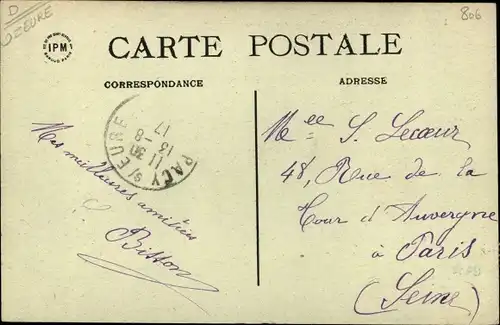 D
EURE
806
IPM
CARTE POSTALE
CORRESPONDANCE
ADRESSE
PACY S/ EURE
11 30
13 - 8
17
Mes meilleures amitiés
Bisson
Mee S. Lecœur
48, Rue de la
Tour d'Auvergne
à Paris
(Seine)